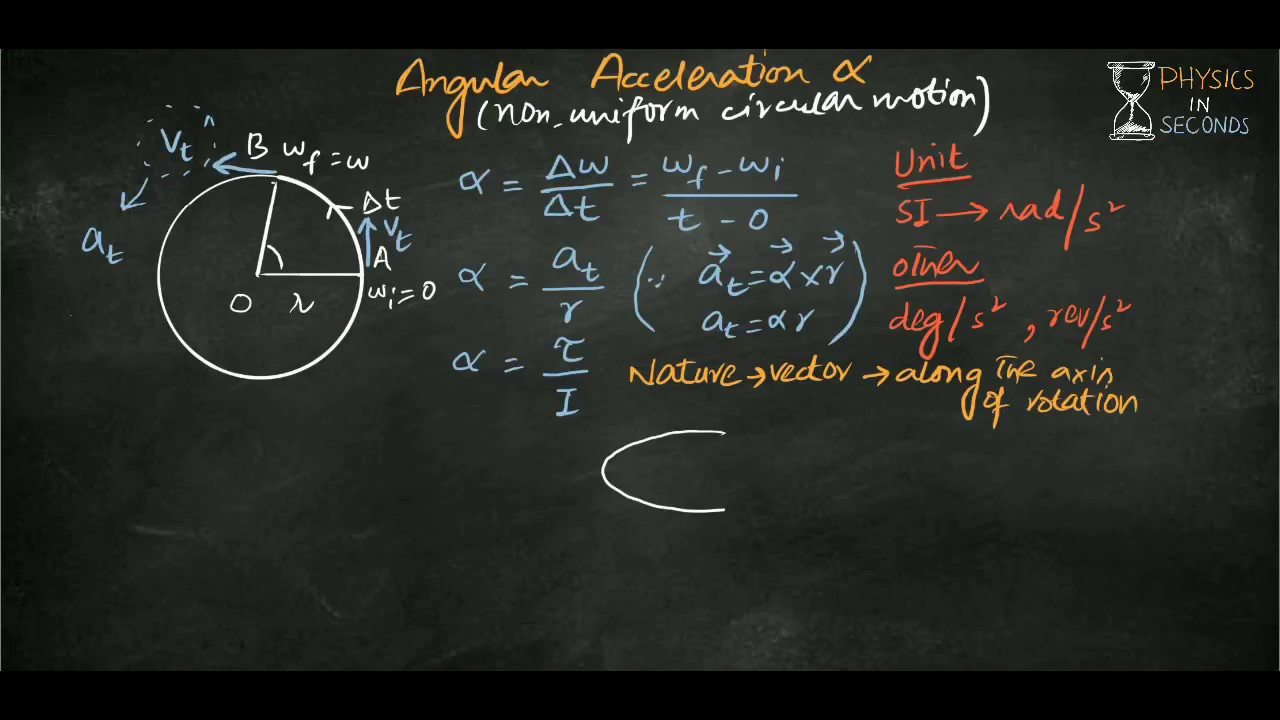 Angular Acceleration α
(non-uniform circular motion)
PHYSICS
IN
SECONDS
Vt
B ωf = ω
Δt
Vt
at
A
O r
ωi = 0
α = Δω/Δt = ωf - ωi / t - 0
α = at/r (∵ a⃗t = α⃗ × r⃗
at = αr)
α = τ/I
Unit
SI → rad/s²
other
deg/s², rev/s²
Nature → vector → along the axis
of rotation